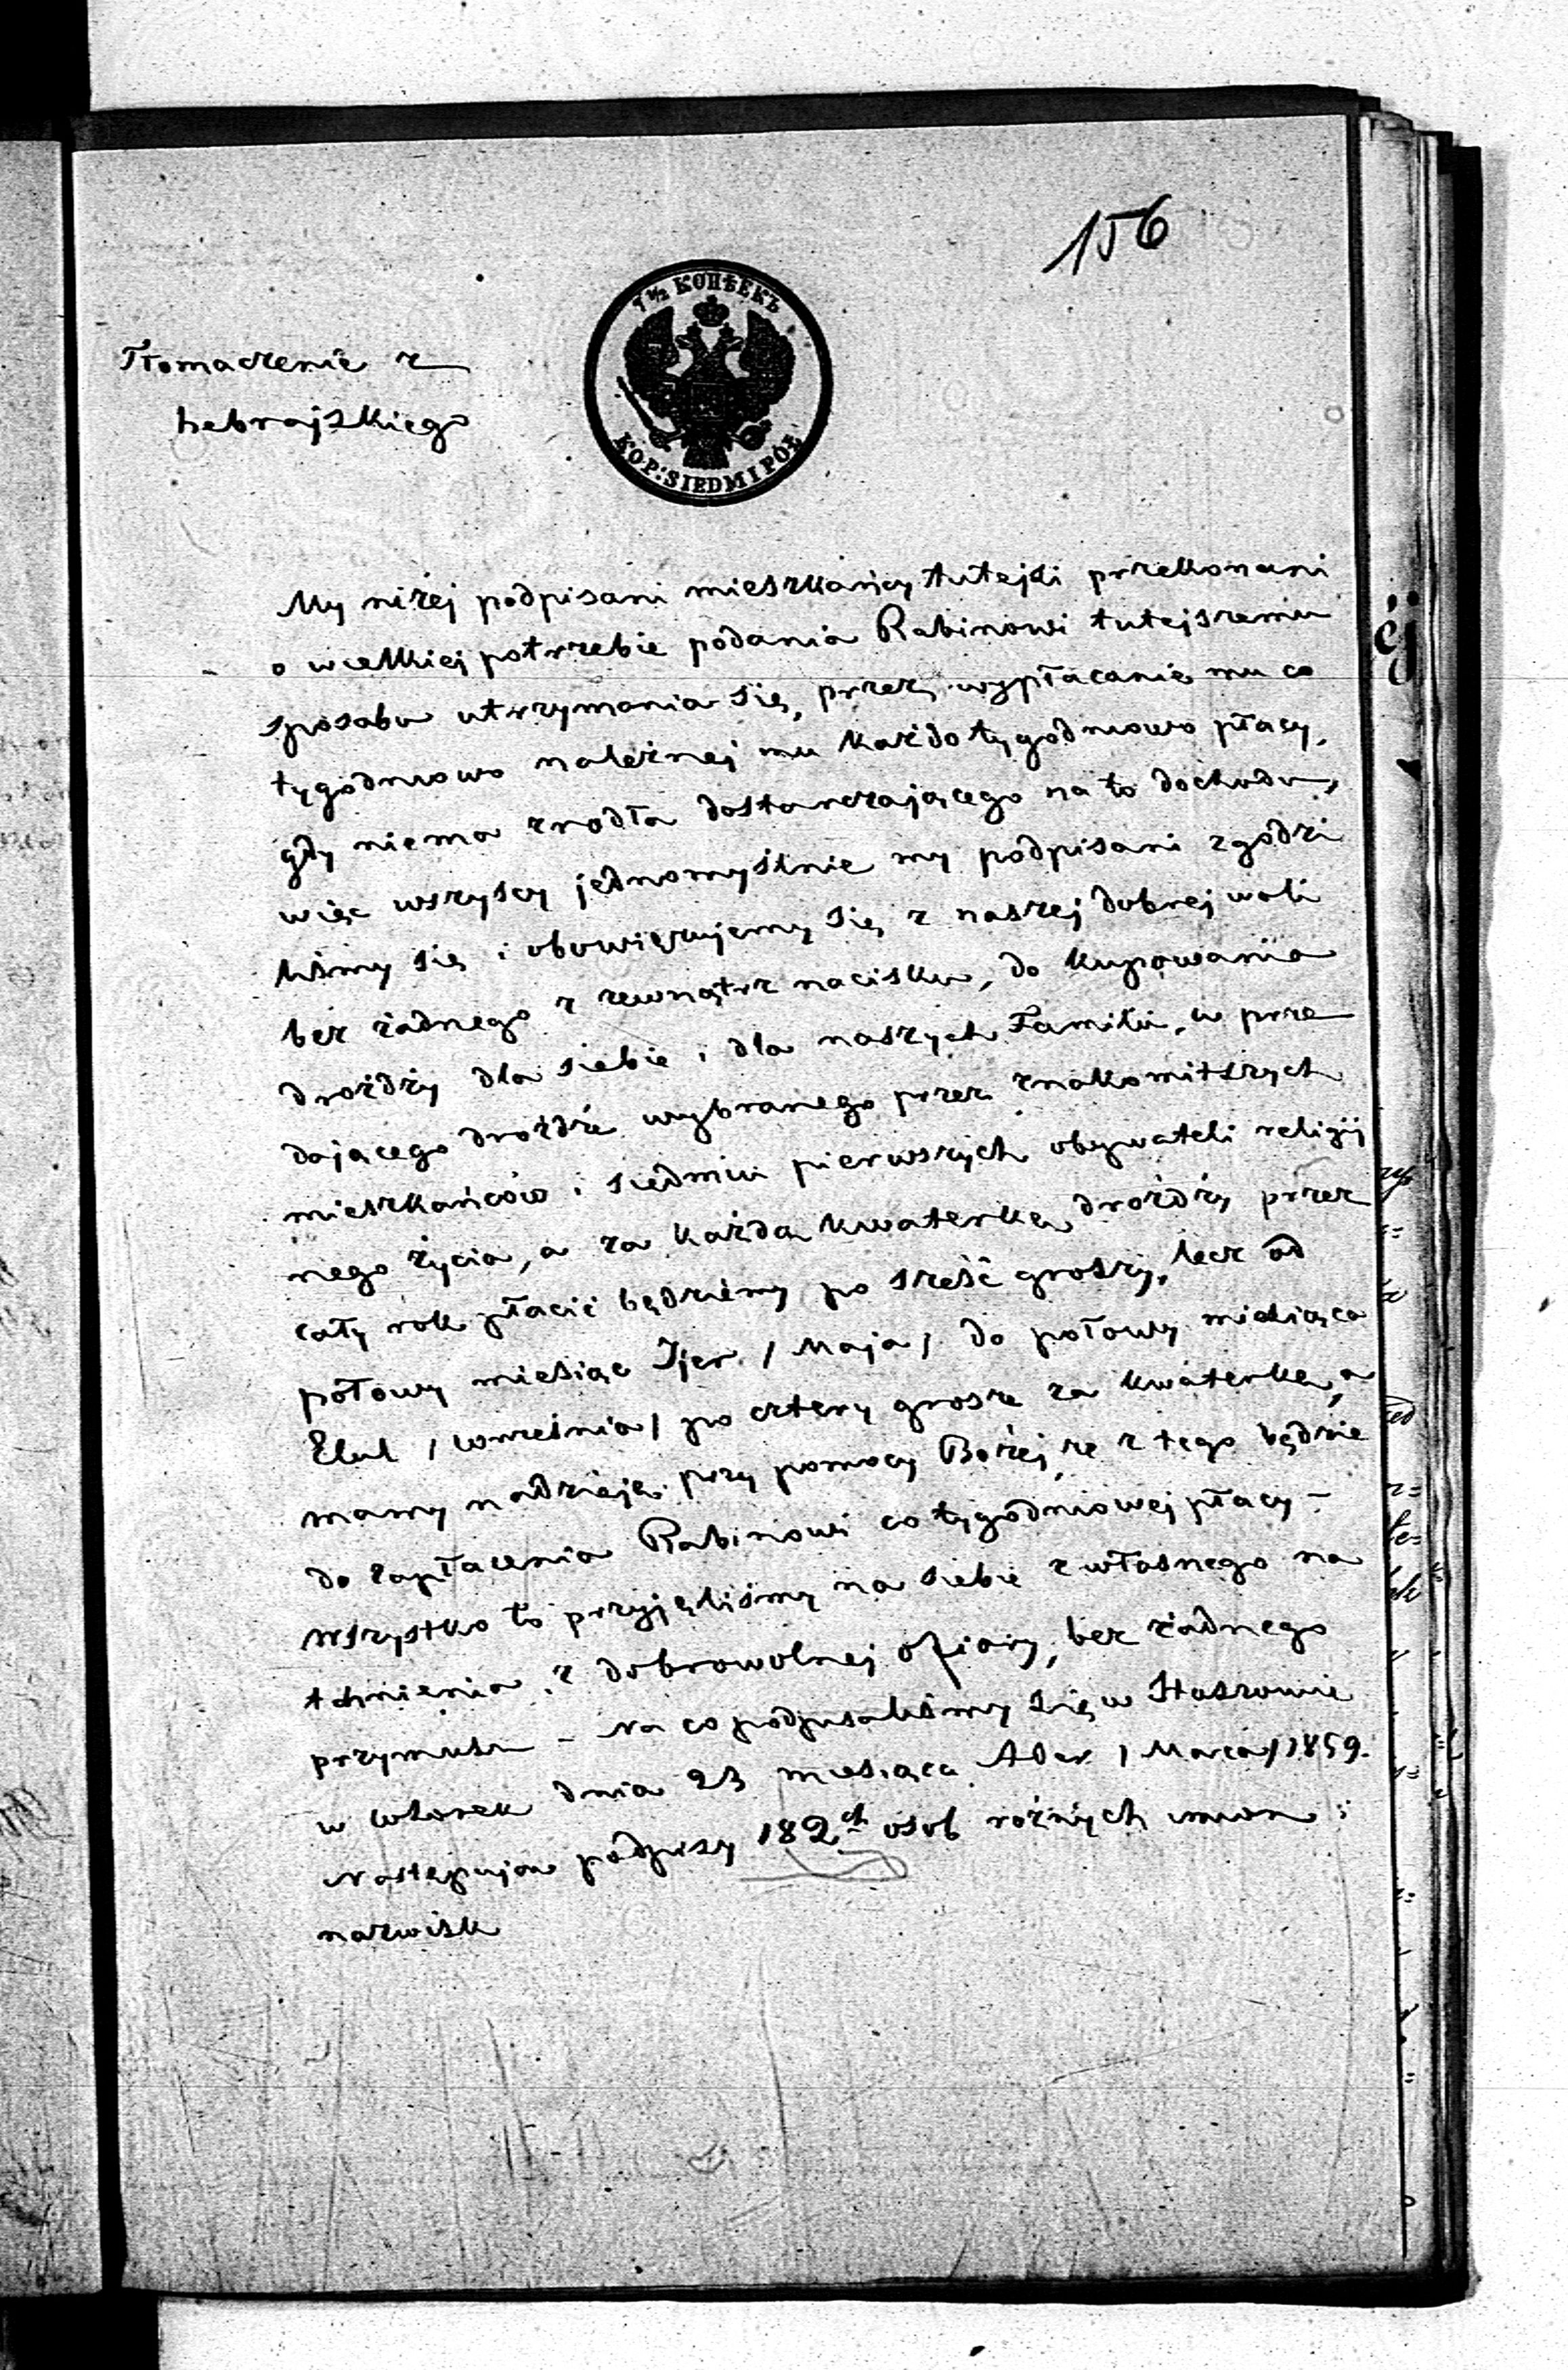 156
7 1/2 КОПѢЕКЪ
KOP: SIEDM I PÓŁ
Tłomaczenie z
hebrajskiego
My niżej podpisani mieszkańcy tutejsi przekonani
o wielkiej potrzebie podania Rabinowi tutejszemu
sposobu utrzymania się, przez wypłacanie mu co
tygodniowo należnej mu każdotygodniowo płacy,
gdy niema zrodła dostarczającego na to dochodu,
więc wszyscy jednomyślnie my podpisani zgodzi
liśmy się i obowięzujemy się z naszej dobrej woli
bez żadnego z zewnątrz nacisku, do kupowania
drożdży dla siebie i dla naszych Familii, w prze
dającego drożdże wybranego przez znakomitszych
mieszkańców i siedmiu pierwszych obywateli religij
nego życia, a za każdą kwaterkę drożdży przez
cały rok płacić będziemy po sześć groszy, lecz od
połowy miesiąc Ijer / Maja / do połowy miesiąca
Elul / września / po cztery grosze za kwaterkę, a
mamy nadzieję przy pomocy Bożej, że z tego będzie
do zapłacenia Rabinowi co tygodniowej płacy -
wszystko to przyjęliśmy na siebie z własnego na
tchnienia, z dobrowolnej ofiary, bez żadnego
przymusu - na co podpisaliśmy się w Staszowie
w wtorek dnia 23 miesiąca Ader / Marca / 1859.
Następują podpisy 182ch osob rożnych imion i
nazwisk